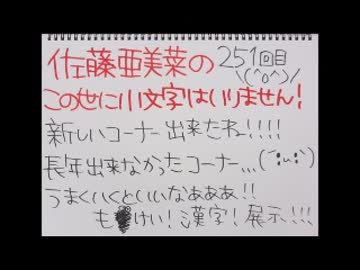 佐藤亜美菜の 251回目
\(^o^)/
この世に小文字はいりません!
新しいコーナー出来たね!!!!
長年出来なかったコーナー...(´;ω;`)
うまくいくといいなあああ!!
も けい! 漢字! 展示!!!